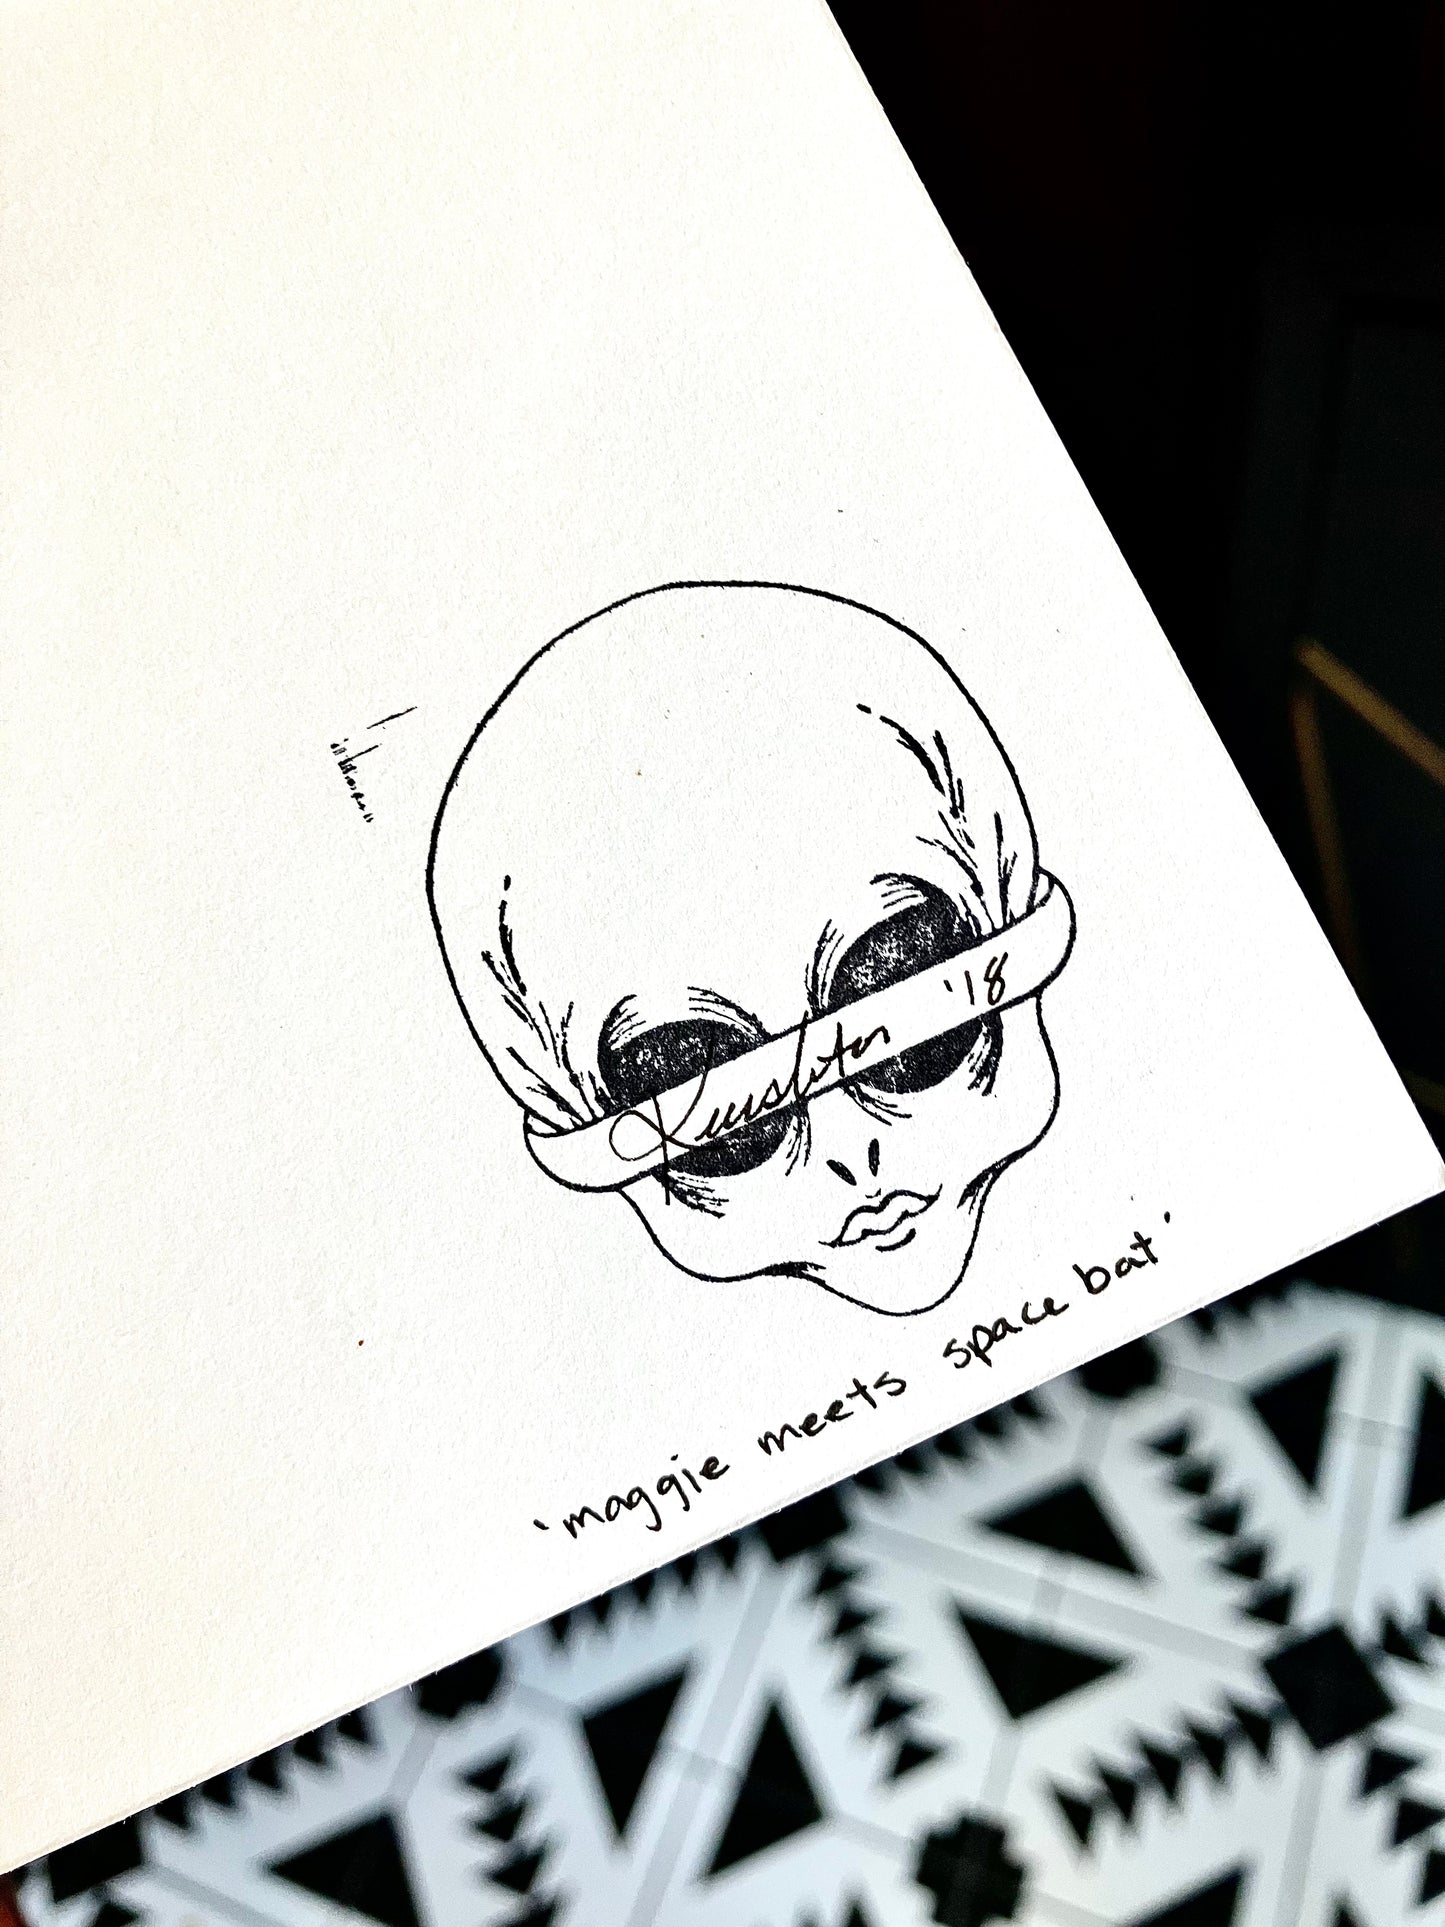 '18
'maggie meets space bat'